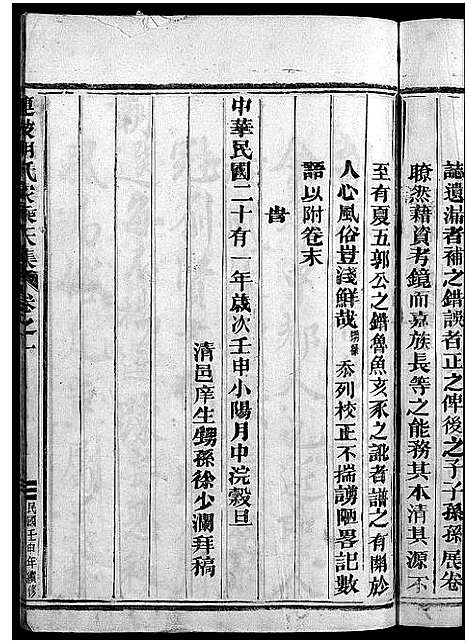 誌遺漏者補之錯誤者正之俾後之子子孫孫展卷
瞭然藉資考鏡而嘉族長等之能務其本清其源不
至有夏五郭公之錯魯魚亥豕之訛者譜之有關於
人心風俗豈淺鮮哉甥孫忝列校正不揣謭陋畧記數
語以附卷末
旹
中華民國二十有一年歲次壬申小陽月中浣穀旦
清邑庠生甥孫徐少瀾拜稿
胡氏家乘天集 卷之一
民國壬申年續修